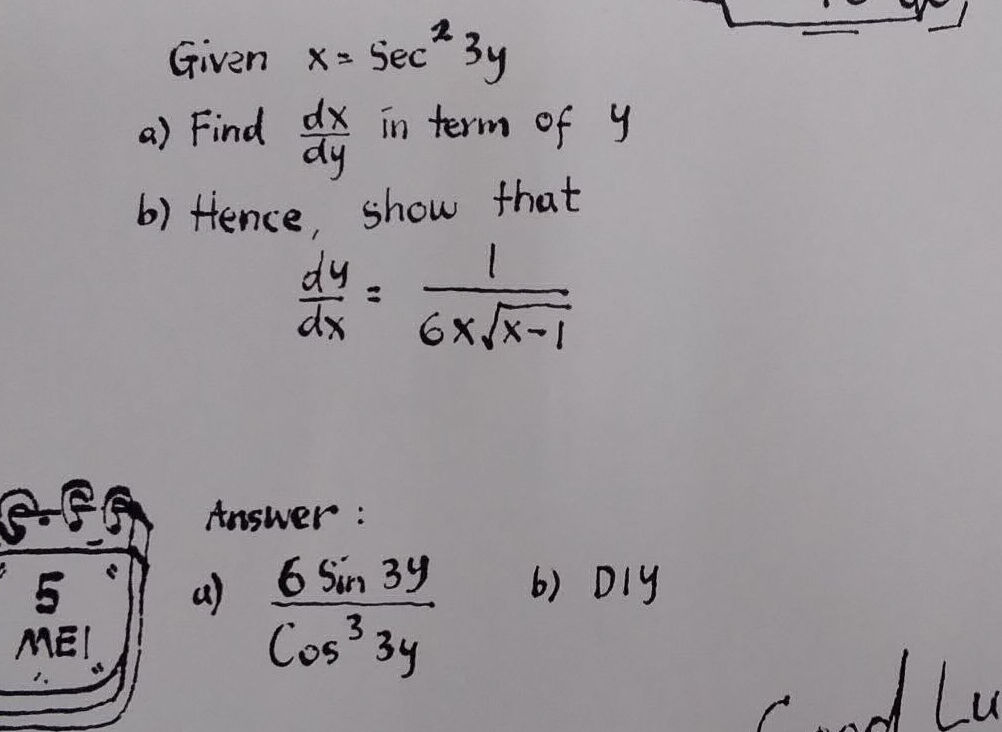 Given x = Sec² 3y
a) Find dx/dy in term of y
b) Hence, show that
dy/dx = 1/(6x√(x-1))
Answer :
a) 6 Sin 3y / Cos³ 3y
b) DIY
5
MEI
Good Lu